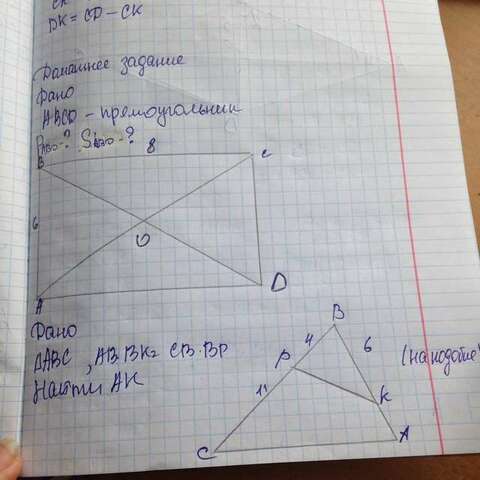 DK = CD - CK
Домашнее задание
Дано
ABCD - прямоугольник
PABO-? SABO-?
B 8 C
6
O
A D
Дано
ΔABC, AB·BK= CB·BP
Найти AK
B
4 6
P (на подобие)
11
K
C A